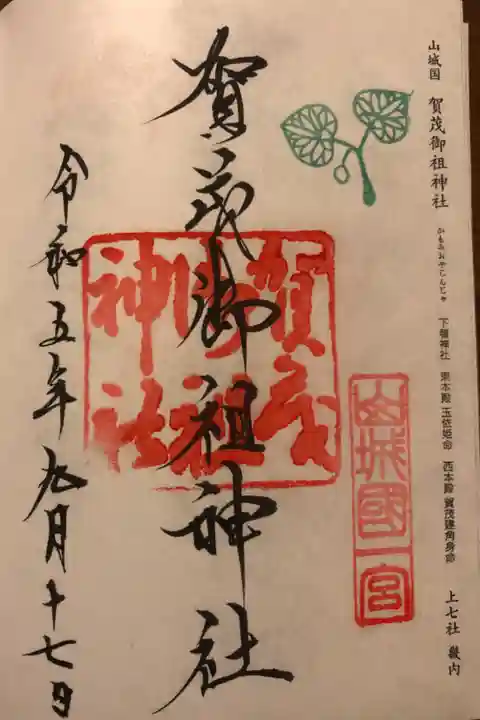 山城国 賀茂御祖神社 かもみおやじんじゃ 下鴨神社 東本殿 玉依姫命 西本殿 賀茂建角身命 上七社 畿内
山城國一宮
賀茂御祖神社
賀茂御祖神社
令和五年九月十七日